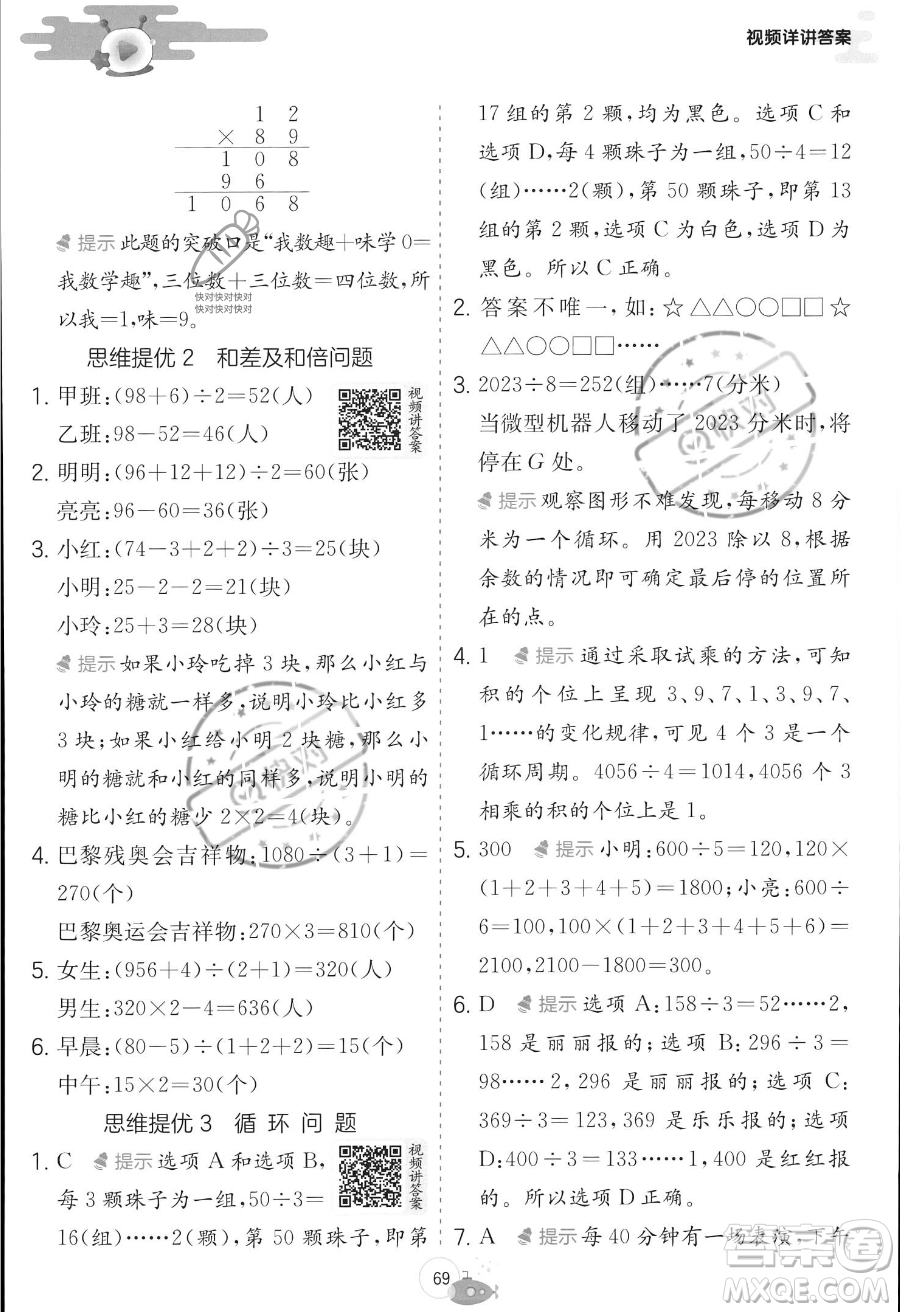 视频详讲答案
1 2
× 8 9
1 0 8
9 6
1 0 6 8
提示 此题的突破口是“我数趣+味学0=
我数学趣”,三位数+三位数=四位数,所
以我=1,味=9。
快对快对快对
快对快对快对
思维提优2 和差及和倍问题
1. 甲班:(98+6)÷2=52(人)
乙班:98-52=46(人)
视频讲答案
2. 明明:(96+12+12)÷2=60(张)
亮亮:96-60=36(张)
3. 小红:(74-3+2+2)÷3=25(块)
小明:25-2-2=21(块)
小玲:25+3=28(块)
提示 如果小玲吃掉 3 块,那么小红与
小玲的糖就一样多,说明小玲比小红多
3块;如果小红给小明 2 块糖,那么小
明的糖就和小红的同样多,说明小明的
糖比小红的糖少 2×2=4(块)。
4. 巴黎残奥会吉祥物:1080÷(3+1)=
270(个)
巴黎奥运会吉祥物:270×3=810(个)
5. 女生:(956+4)÷(2+1)=320(人)
男生:320×2-4=636(人)
6. 早晨:(80-5)÷(1+2+2)=15(个)
中午:15×2=30(个)
思维提优3 循环问题
1. C 提示 选项 A 和选项 B,
每 3 颗珠子为一组,50÷3=
16(组)……2(颗),第 50 颗珠子,即第
视频讲答案
17 组的第 2 颗,均为黑色。选项 C 和
选项 D,每 4 颗珠子为一组,50÷4=12
(组)……2(颗),第 50 颗珠子,即第 13
组的第 2 颗,选项 C 为白色,选项 D 为
黑色。所以 C 正确。
2. 答案不唯一,如:☆△△○○□□☆
△△○○□□……
3. 2023÷8=252(组)……7(分米)
当微型机器人移动了 2023 分米时,将
停在 G 处。
提示 观察图形不难发现,每移动 8 分
米为一个循环。用 2023 除以 8,根据
余数的情况即可确定最后停的位置所
在的点。
4. 1 提示 通过采取试乘的方法,可知
积的个位上呈现 3、9、7、1、3、9、7、
1……的变化规律,可见 4 个 3 是一个
循环周期。4056÷4=1014,4056 个 3
相乘的积的个位上是 1。
5. 300 提示 小明:600÷5=120,120×
(1+2+3+4+5)=1800;小亮:600÷
6=100,100×(1+2+3+4+5+6)=
2100,2100-1800=300。
6. D 提示 选项 A:158÷3=52……2,
158 是丽丽报的;选项 B:296÷3=
98……2,296 是丽丽报的;选项 C:
369÷3=123,369 是乐乐报的;选项
D:400÷3=133……1,400 是红红报
的。所以选项 D 正确。
7. A 提示 每 40 分钟有一场表演,下午
69
答案圈
MXQE.COM